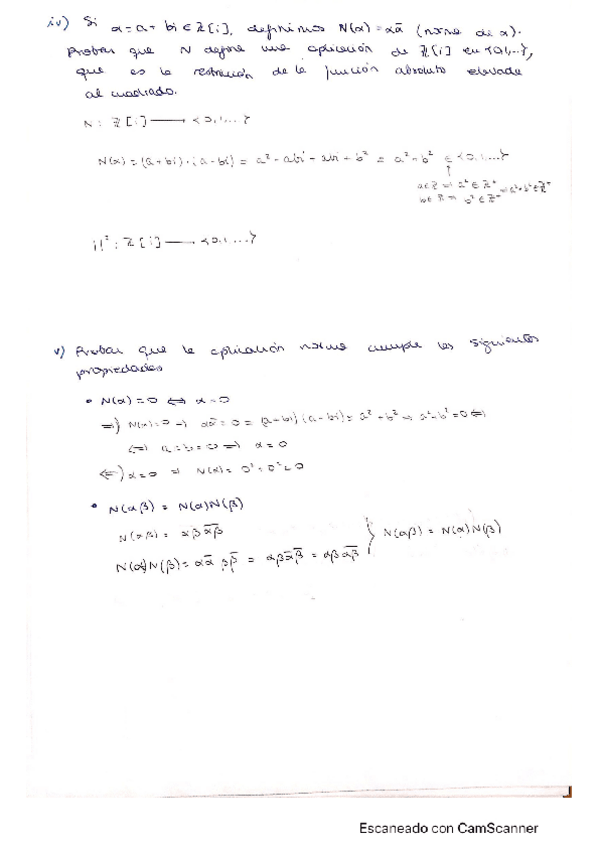 iv) Si α = a + bi ∈ ℤ[i], definimos N(α) = αᾱ (norma de α).
Probar que N define una aplicación de ℤ[i] en {0,1,...},
que es la restricción de la función absoluto elevada
al cuadrado.
N : ℤ[i] ⟶ {0,1,...}
N(α) = (a+bi)·(a-bi) = a² - abi - abi + b² = a² + b² ∈ {0,1,...}
↑
a ∈ ℤ ⇒ a² ∈ ℤ⁺
b² ∈ ℤ⁺
⇒ a² + b² ∈ ℤ⁺
||² : ℤ[i] ⟶ {0,1,...}
v) Probar que la aplicación norma cumple las siguientes
propiedades
• N(α) = 0 ⇔ α = 0
⇒) N(α) = 0 ⇒ αᾱ = 0 = (a+bi)(a-bi) = a² + b² ⇒ a² + b² = 0 ⇔
⇔ a = b = 0 ⇒ α = 0
⇐) α = 0 ⇒ N(α) = 0² + 0² = 0
• N(αβ) = N(α)N(β)
N(αβ) = αβ \overline{αβ}
N(α)N(β) = αᾱ ββ̄ = αβᾱβ̄ = αβ \overline{αβ}
} N(αβ) = N(α)N(β)
Escaneado con CamScanner